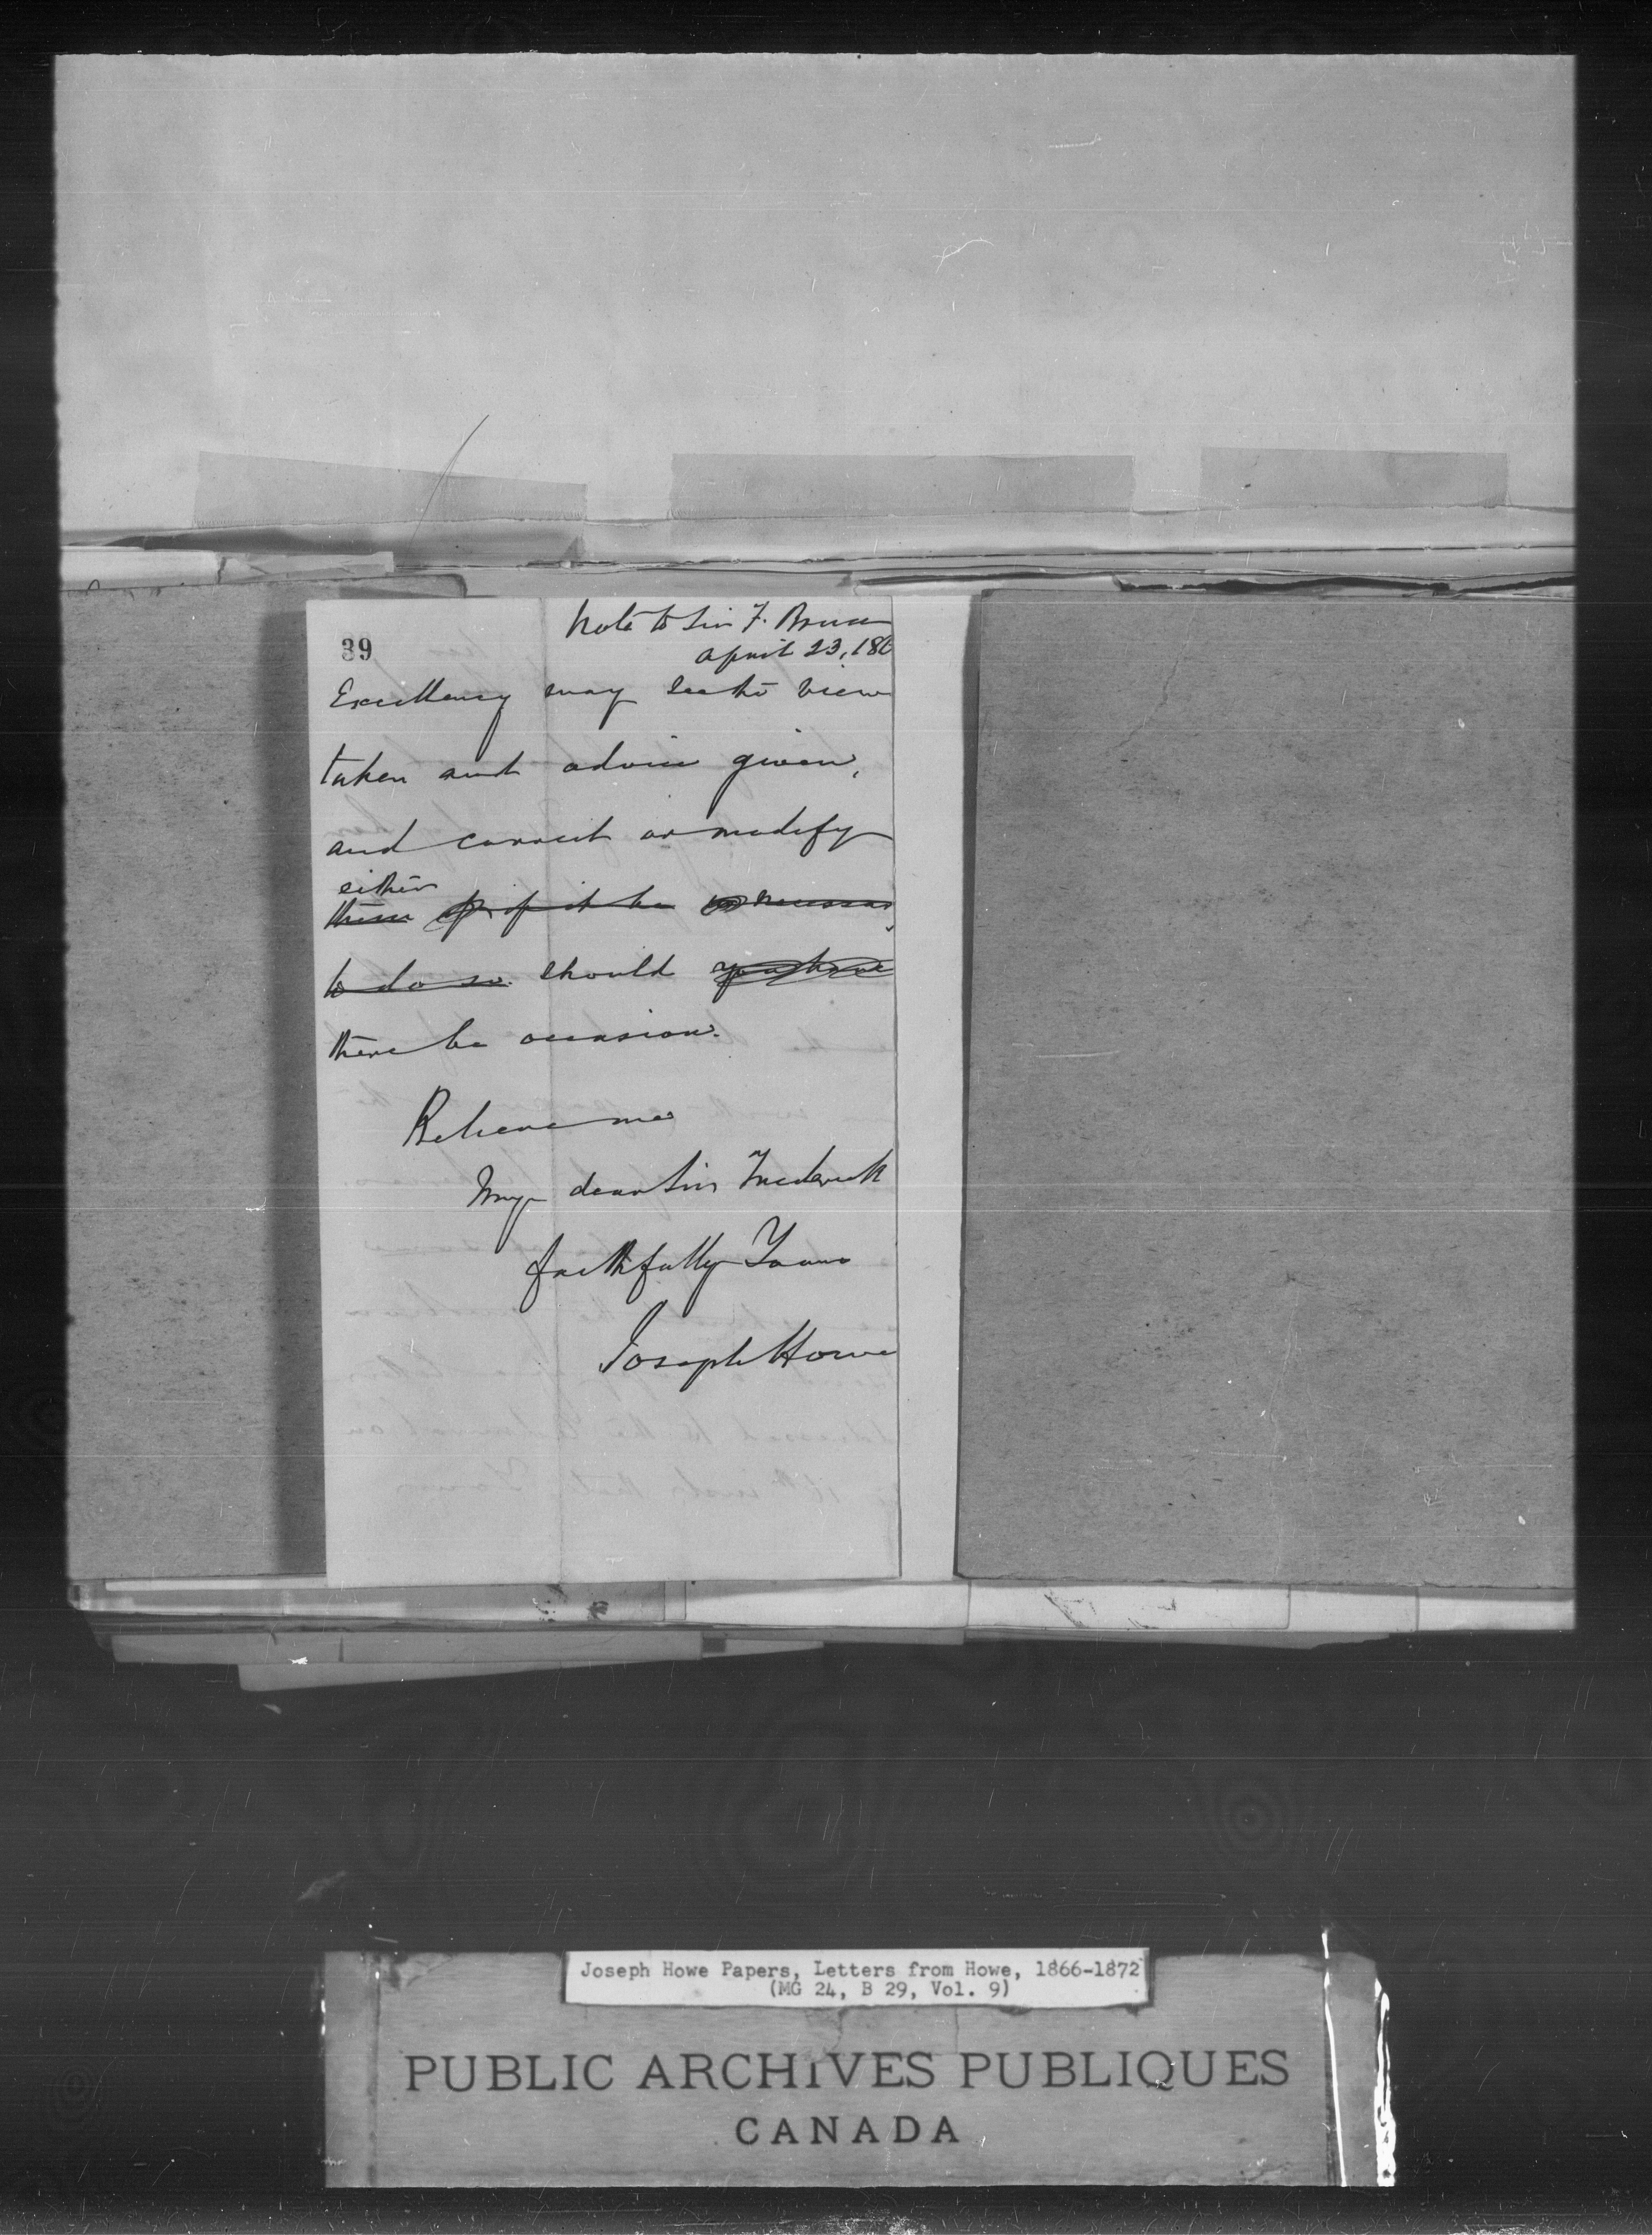 Note to Sir F. Bruce
39
April 23, 186
Excellency may see the view
taken and advice given,
and correct or modify
either
these if it be necessary
to do so should you have
there be occasion.
Believe me
My dear Sir Frederick
faithfully Yours
Joseph Howe
Joseph Howe Papers, Letters from Howe, 1866-1872
(MG 24, B 29, Vol. 9)
PUBLIC ARCHIVES PUBLIQUES
CANADA